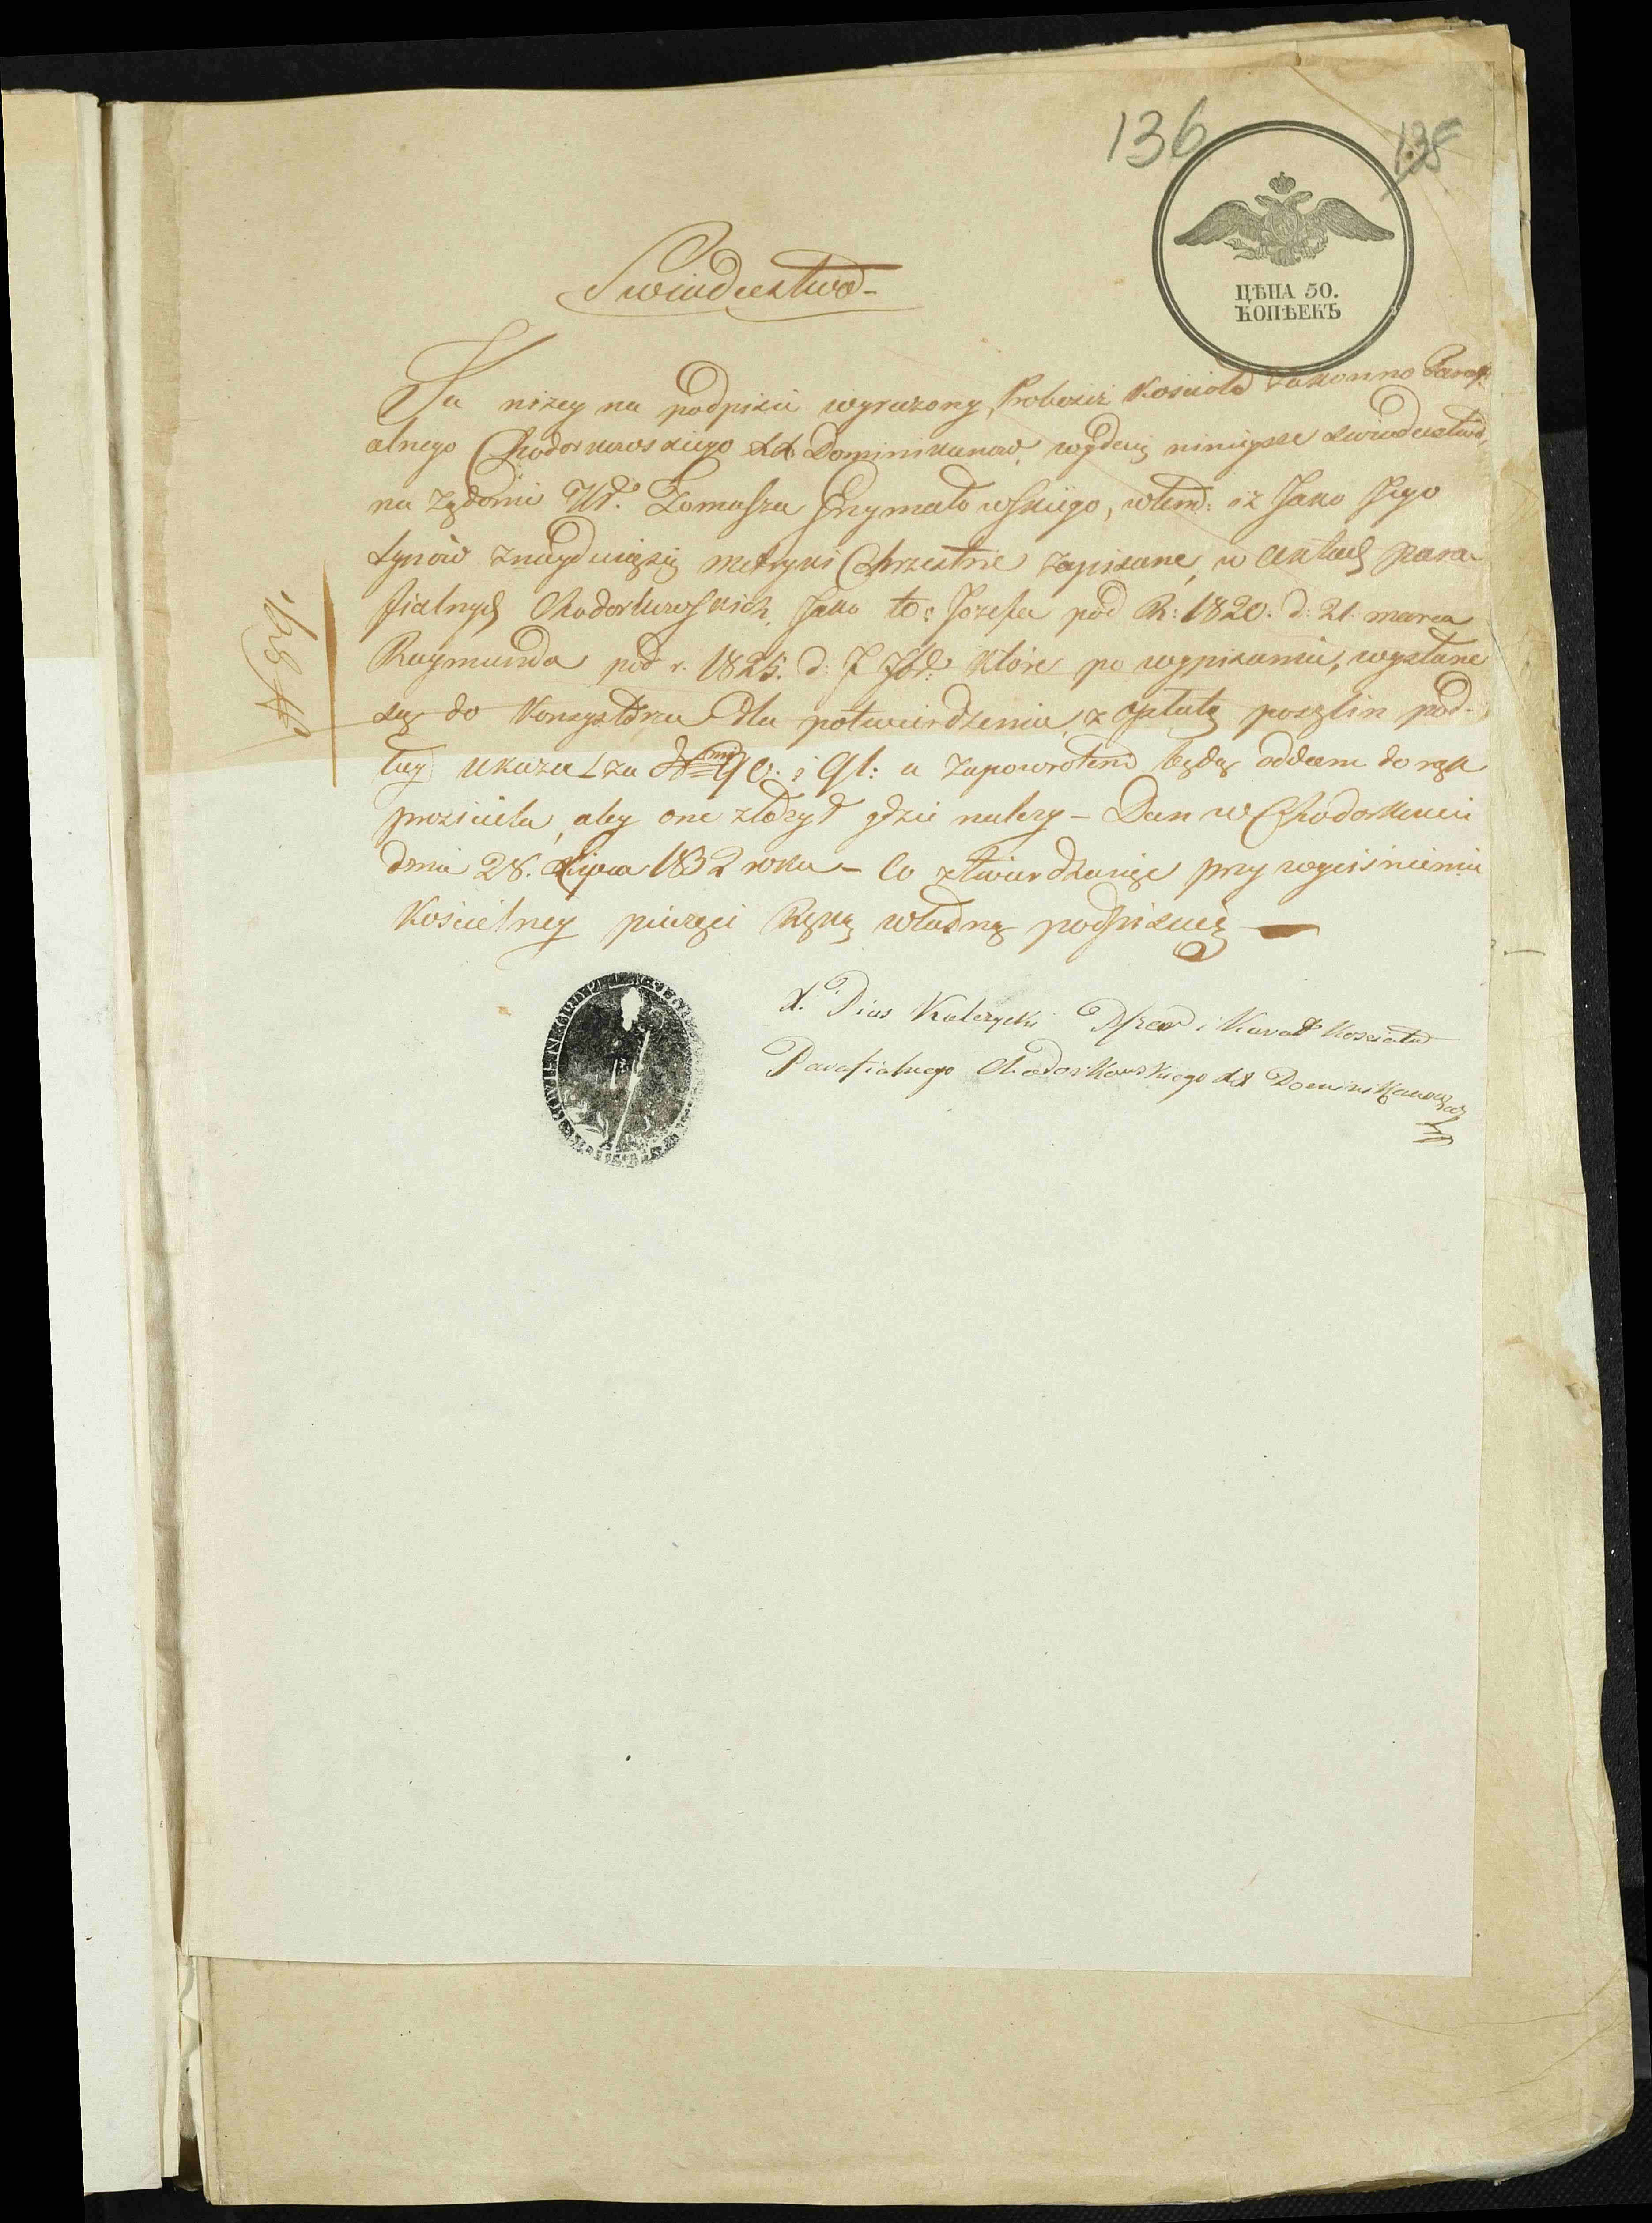 136
138
ЦѢНА 50.
КОПѢЕКЪ
Swiadectwo-
Ja niżey na podpisie wyrażony, Proboszcz Kościoła Zakonno Parafi
alnego Chodorkowskiego XX Dominikanow, wydaię ninieysze swiadectwo,
na żądanie Wº. Tomasza Grzymałowskiego, wtem: iż Jako Jego
synów znayduiąsię metryki Chrzestne zapisane, w aktach para-
fialnych Chodorkowskich, Jako to: Jozefa pod R: 1820. d: 21. marca
Raymunda pod r. 1825. d: 7br: które po wypisaniu, wysłane
są do Konsystorza dla potwierdzenia, z opłatą poszlin pod-
ług ukazu za Nmi 90. i 91: a zapowrotem będą oddane do rąk
prosiciela, aby one złożył gdzie należy - Dan w Chodorkowie
dnia 28. Lipca 1832 roku - Co stwierdzaiąc przy wyciśnieniu
Kościelney pieczęci Ręką własną podpisuię -
X. Pius Kależycki Przeor i Kurat Kosciołu
Parafialnego Chodorkowskiego XX Dominikanow